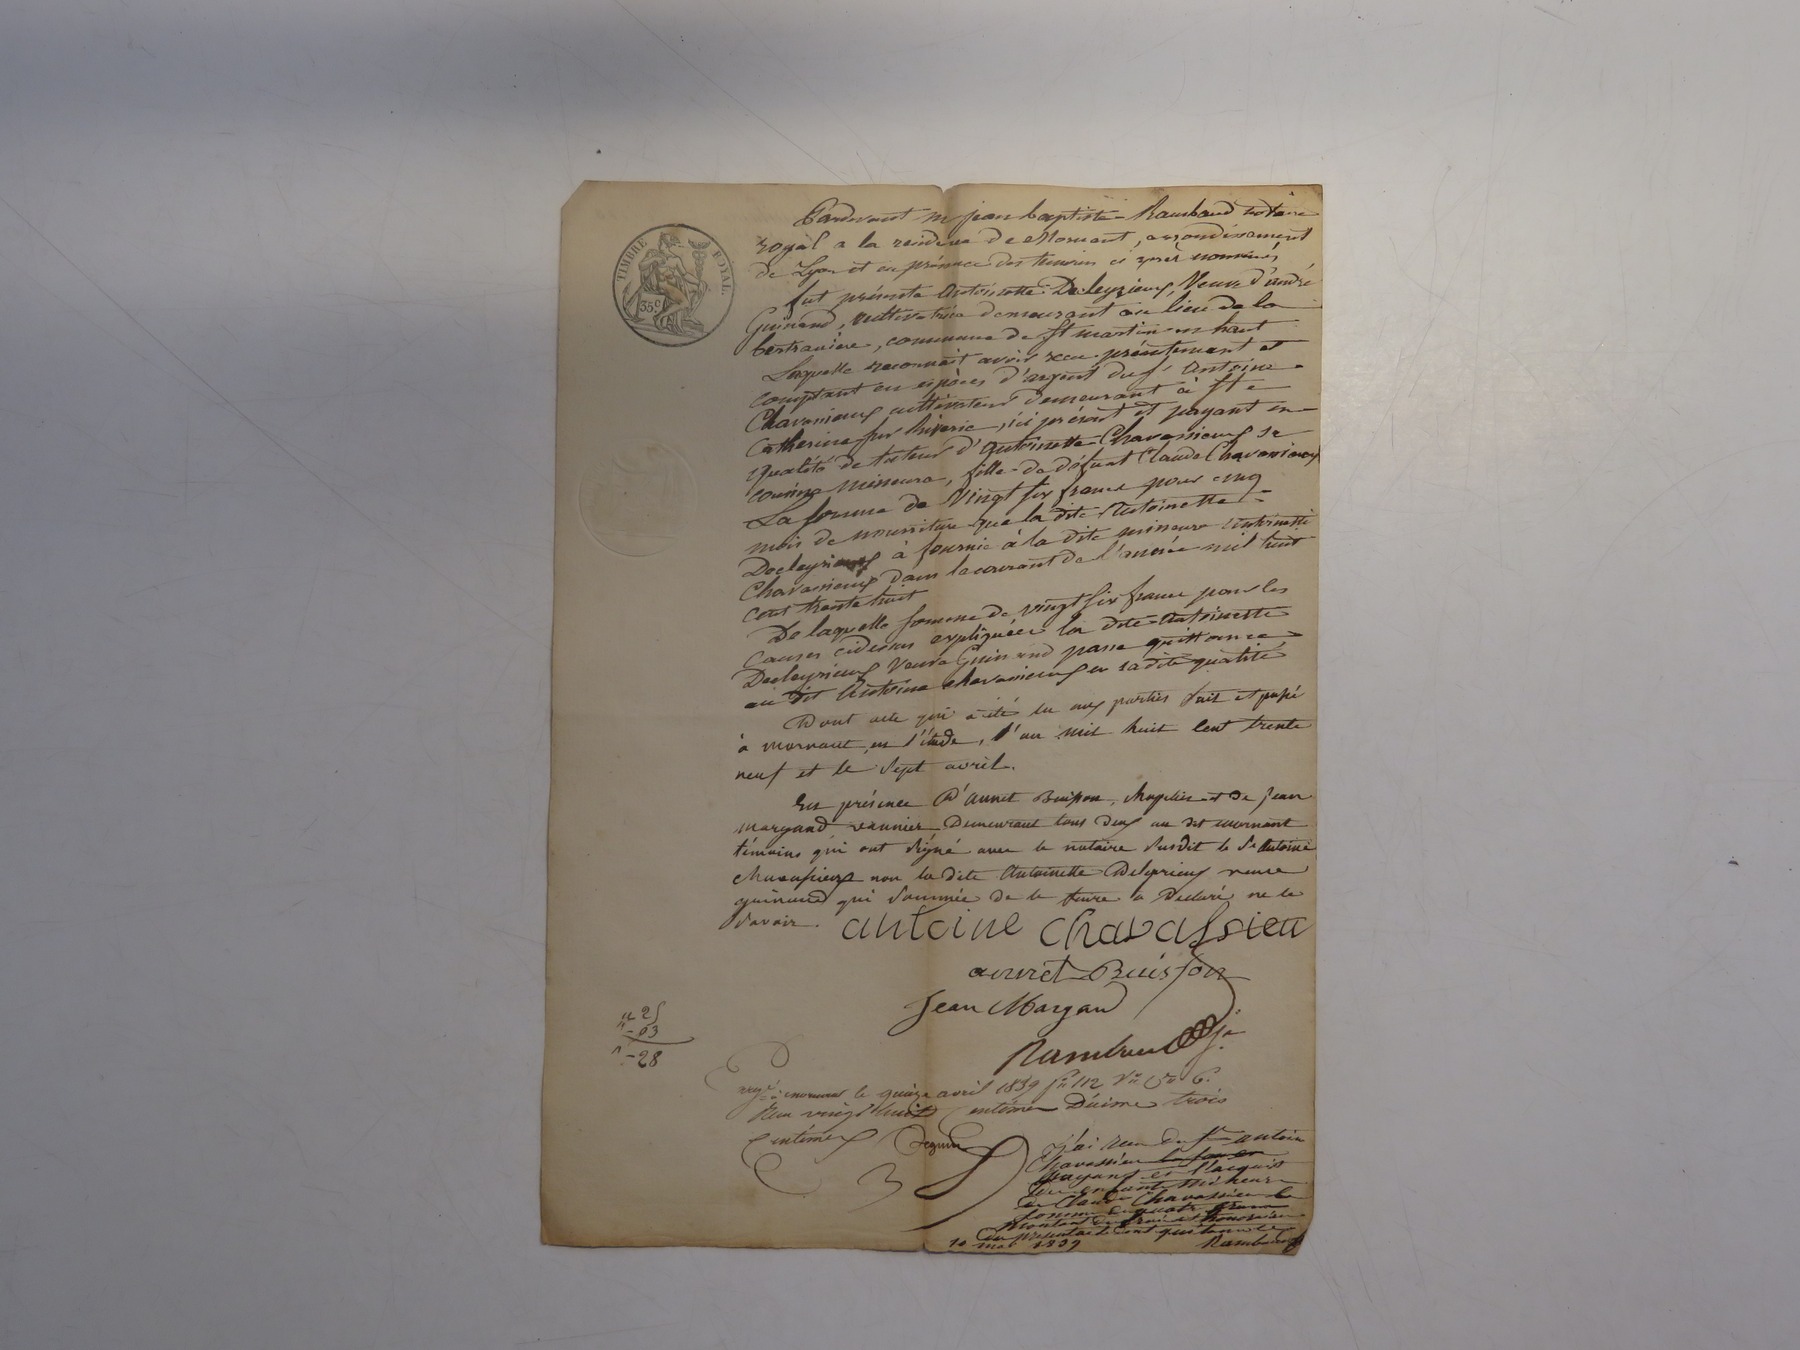 TIMBRE ROYAL.
35 c.
Pardevant m jean baptiste Rambaud notaire
royal a la residence de Mornant, arrondissement
de Lyon et en présence des temoins ci après nommés,
fut présente Antoinette Deleyrieux, Veuve d'andré
Guinand, cultivatrice demeurant au lieu de la
bertraniere, commune de St martin en haut
Laquelle reconnait avoir recu présentement et
comptant en espèces d'argent du sr Antoine
Chavassieux cultivateur demeurant à Ste
Catherine sur Riverie, ici présent et payant en
qualité de tuteur d'Antoinette Chavassieux sa
cousine mineure, fille de défunt Claude Chavassieux
La somme de Vingt six francs pour cinq
mois de nourriture que la dite Antoinette
Decleyrieux à fournie à la dite mineure Antoinette
Chavassieux dans le courant de l'année mil huit
cent trente huit
De laquelle somme de vingt six francs pour les
causes cidessus expliquées la dite Antoinette
Decleyrieux veuve Guinand passe quittance
au dit Antoine chavassieux en sadite qualité
Dont acte qui a été lu aux parties fait et passé
à mornant en l'étude, l'an mil huit cent trente
neuf et le sept avril.
En présence d'annet Buisson, chapelier et de jean
margand, vannier Demeurant tous deux au dit mornant
témoins qui ont signé avec le notaire susdit le Sr Antoine
chavassieux non la dite Antoinette Deleyrieux veuve
guinand qui sommée de le faire a Declaré ne le
savoir.
antoine chavassieu
annet Buisson
Jean Margand
Rambaud
25
03
28
à mornant le quinze avril 1839 112
Recu vingt huit centimes Décime trois
centimes
j'ai recu du Sr antoine
chavassieu la som en
payant en l'acquit
des enfants Mineurs
de Claude Chavassieu la
somme de quatre francs
montant des frais et honoraires
du présent acte dont quittance
10 mai 1839 Rambaud